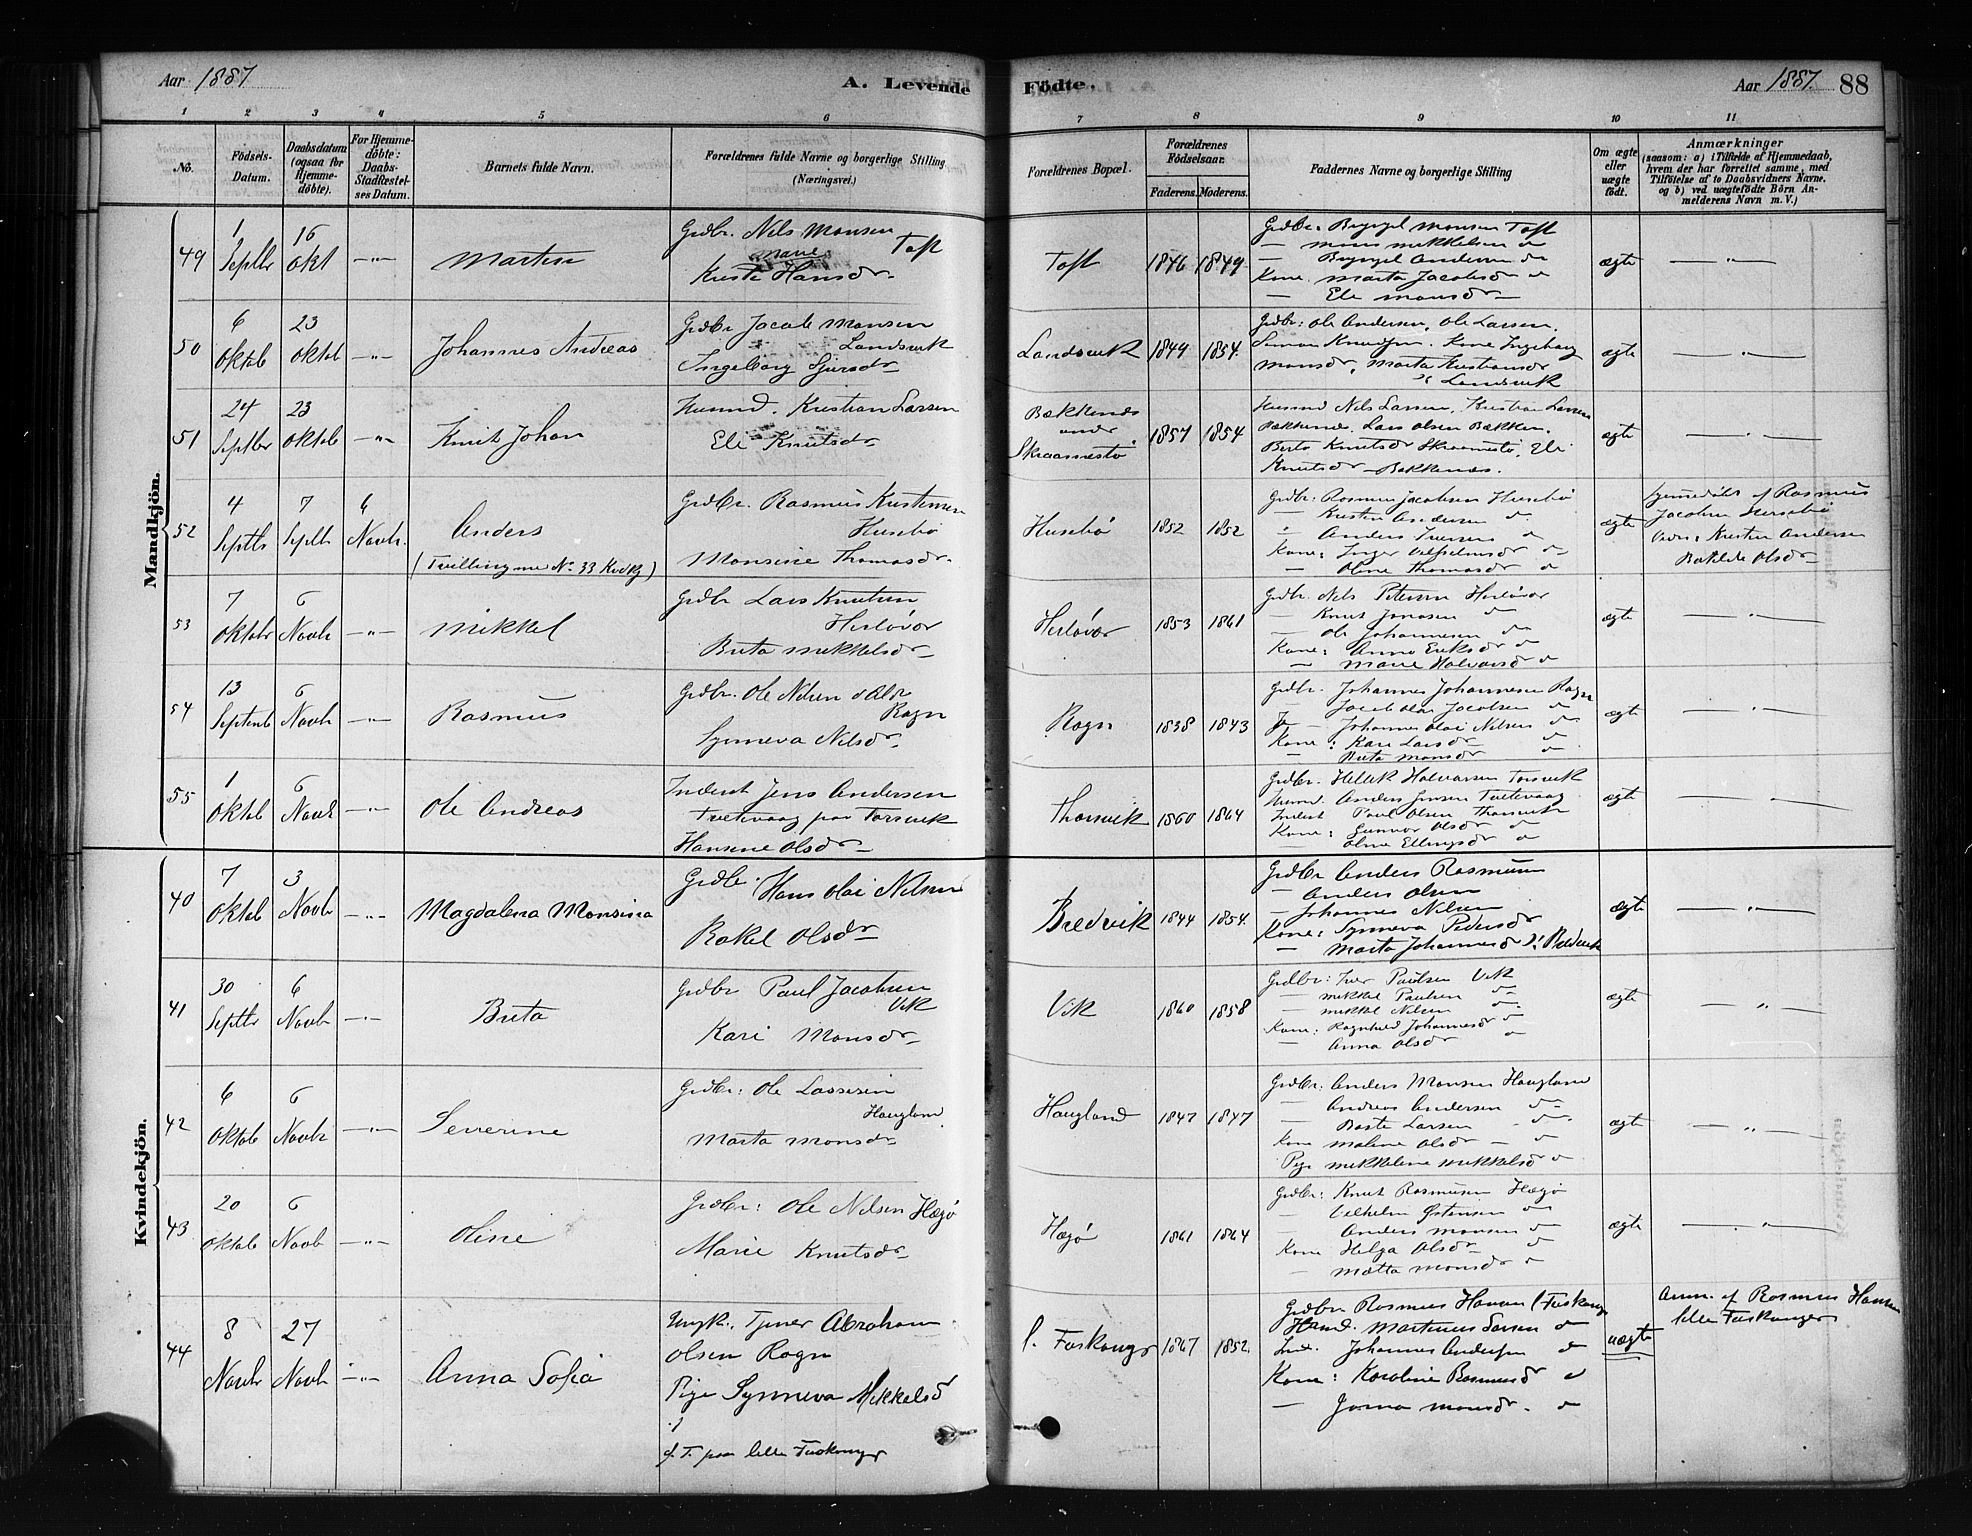 Aar 1887. A. Levende Födte. Aar 1887. 88
1 2 3 4 5 6 7 8 9 10 11
No. Födsels-Datum. Daabsdatum (ogsaa for Hjemme-döbte). For Hjemme-döbte: Daabs-Stadfæstel-ses Datum. Barnets fulde Navn. Forældrenes fulde Navne og borgerlige Stilling (Næringsvei.) Forældrenes Bopæl. Forældrenes Födselsaar. Faderens. Moderens. Faddernes Navne og borgerlige Stilling Om ægte eller uægte födt. Anmærkninger (saasom: a) i Tilfælde af Hjemmedaab, hvem der har forrettet samme, med Tilföielse af to Daabsvidners Navne, og b) ved uægtefödte Börn An-melderens Navn m. V.)
Mandkjön.
49 1 Septbr 16 Okt —"—
Grdbr. Nils Monsen
Toft
Hansdr.
Toft 1846 1849.
Monsen Toft
Mons Mikkelsen do
Andersen do
Kone Marta Jacobsdr do
Eli Monsdr —
ægte —"—
50 6 Oktob 23 Oktob —"— Johannes Andreas
Grdbr Jacob Monsen
Landsvik
Ingeborg Sjursdr
Landsvik 1849 1854.
Grdbr: Ole Andersen, Ole Larsen,
Simon Knudsen. Kone Ingeborg
Monsdr, Marta Kristiansdr
Landsvik
ægte —"—
51 24 Septbr 23 Oktob —"— Knut Johan
Husmd. Kristian Larsen
Eli Knutsdr
Bækkenes
under
Skraamestø
1857 1854
Husmd Nils Larsen, Kristian Larsen
Bækkenes, Lars Olsen Bækken.
Berta Knutsdr Skraamestø, Eli
Knutsdr Bækkenes.
ægte —"—
52 4 Septbr 7 Septb 6 Novbr. Anders
(Tvilling med No. 33 Kvdkj)
Grdbr. Rasmus Kristensen
Husebø
Monsine Thomasdr.
Husebø 1852 1852
Grdbr: Rasmus Jacobsen Husebø
Kristen Andersen do
Anders Iversen do
Kone: Inger Vilhelmsdr do
Oline Thomasdr do
ægte
Hjemmedöbt af Rasmus
Jacobsen Husebø
Vidn: Kristen Andersen
Olsdr
53 7 Oktobr 6 Novbr —"— Mikkel
Grdbr Lars Knutsen
Herløvær
Brita Mikkelsdr
Herløvær 1853 1861
Grdbr. Nils Petersen Herløvær
Knut Jonasen do
Ole Johannesen do
Kone: Anna Eriksdr do
Marie Halvorsdr do
ægte —"—
54 13 Septemb 6 Novbr —"— Rasmus
Grdbr. Ole Nilsen
Rogn
Synneva Nilsdr
Rogn 1838 1843
Grdbr. Johannes Johannesen Rogn
Jacob Olai Jacobsen do
Johannes Olai Nilsen do
Kone: Kari Larsdr do
Brita Monsdr do
ægte —"—
55 1 Oktob 6 Novbr —"— Ole Andreas
Inderst Jens Andersen
Tveitevaag paa Torsvik
Hansine Olsdr
Thorsvik 1860 1864
Grdbr. Halvorsen Torsvik
Husmd. Anders Jensen Tveitevaag
Inderst Paul Olsen Thorsvik
Kone: Gunnor Olsdr do
Oline Ellingsdr do
ægte —"—
Kvindekjön.
40 7 Oktob 3 Novb —"— Magdalena Monsina
Grdbr. Hans Olai Nilsen
Rakel Olsdr
Bredvik 1844 1854.
Grdbr Anders Rasmusen
Anders Olsen
Johannes Nilsen
Kone: Synneva Pedersdr
Marta Johannesdr Bredvik
ægte —"—
41 30 Septbr 6 Novbr —"— Brita
Grdbr Paul Jacobsen
Vik
Kari Monsdr
Vik 1860 1858
Grdbr: Iver Paulsen Vik
Mikkel Paulsen do
Mikkel Nilsen do
Kone: Ragnhild Johannesdr do
Anna Olsdr do
ægte —"—
42 6 Oktob 6 Novbr —"— Severine
Grdbr: Ole Lassesen
Haugland
Marta Monsdr
Haugland 1847 1847
Grdbr: Anders Monsen Haugland
Andreas Andersen do
Larsen do
Kone Malene Olsdr do
Pige Mikkeline Mikkelsdr do
ægte —"—
43 20 Oktob 6 Novb —"— Oline
Grdbr: Ole Nilsen Hægø
Marie Knutsdr
Hægø 1861 1864
Grdbr: Knut Rasmusen Hægø
Vilhelm Østensen do
Anders Monsen do
Kone Helga Olsdr do
Mætta Monsdr do
ægte —"—
44 8 Novbr 27 Novb —"— Anna Sofia
Ungk., Tjener Abraham
Olsen Rogn
Pige Synneva Mikkelsd
f. T. paa lille Fuskanger
l. Foskanger 1867 1852.
Grdbr Rasmus Hansen l Fuskanger
Husmd. Martinus Larsen do
Ind. Johannes Andersen do
Kone: Karoline Rasmusd do
Monsdr. do
uægte
Anm. af Rasmus Hansen
lille Fuskanger